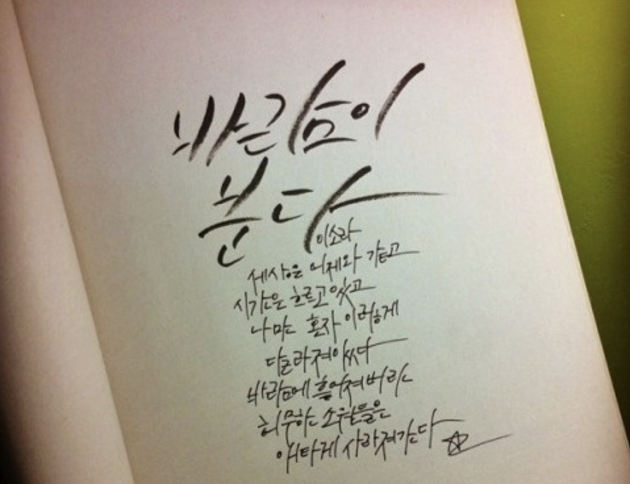 바람이
분다
이소라
세상은 어제와 같고
시간은 흐르고 있고
나만 혼자 이렇게
달라져있다
바람에 흩어져버린
허무한 소원들은
애타게 사라져간다